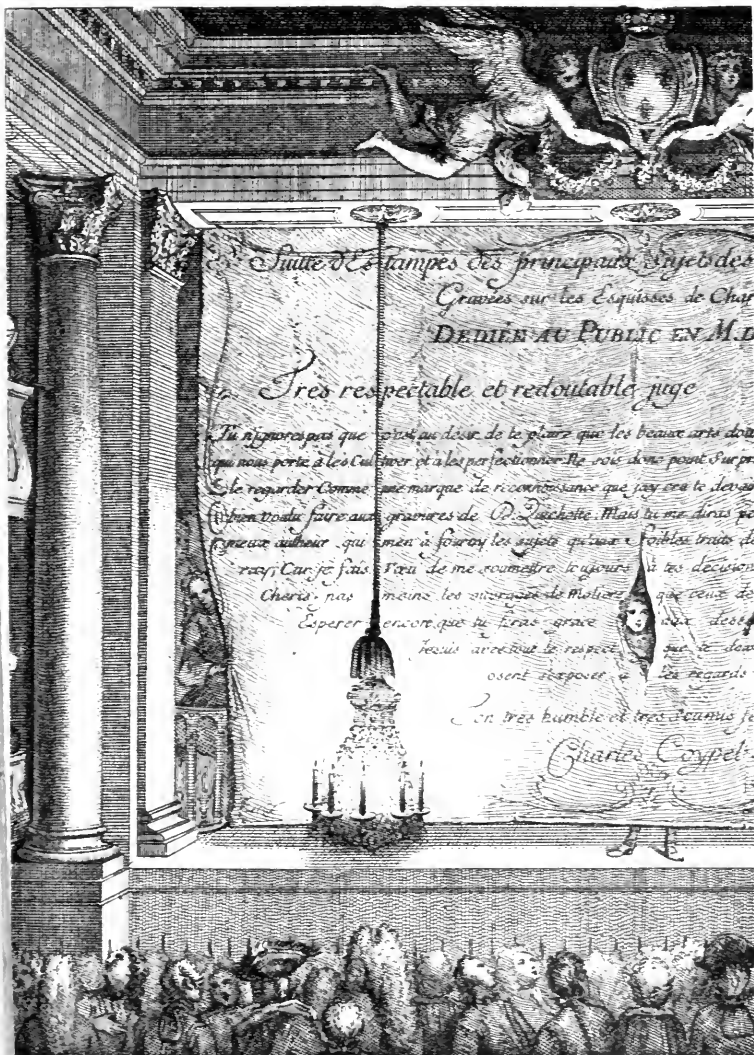 Suitte d'Estampes des principaux Sujets des
Gravées sur les Esquisses de Char
DEDIÉE AU PUBLIC EN M.D
Tres respectable et redoutable juge
Tu n'ignores pas que c'est au désir de te plaire que les beaux arts doi
qui nous porte a les Cultiver et a les perfectionner. Ne sois donc point Surpr
de le regarder Comme une marque de reconnoissance que j'ay cru te devoi
bien voulu faire aux gravures de D. Quichotte. Mais tu me diras
autheur qui m'en a fourny les sujets qu'aux foibles traits d
ray; Car je fais Vœu de me soumettre toujours a tes décision
Cheris pas moins les ouvrages de Moliere que ceux de
Esperer encore que tu feras grace aux dess
avec tout le respect
osent s'exposer a tes regards
Ton tres humble et tres soumis
Charles Coypel